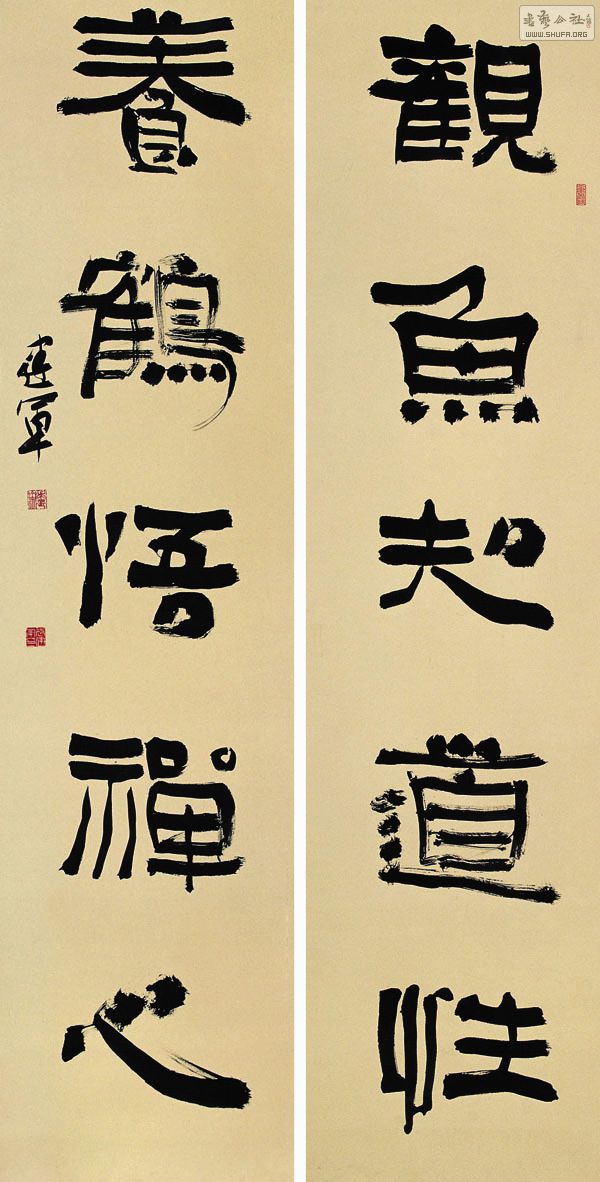 觀魚知道性
養鶴悟禪心
書藝公社
WWW.SHUFA.ORG